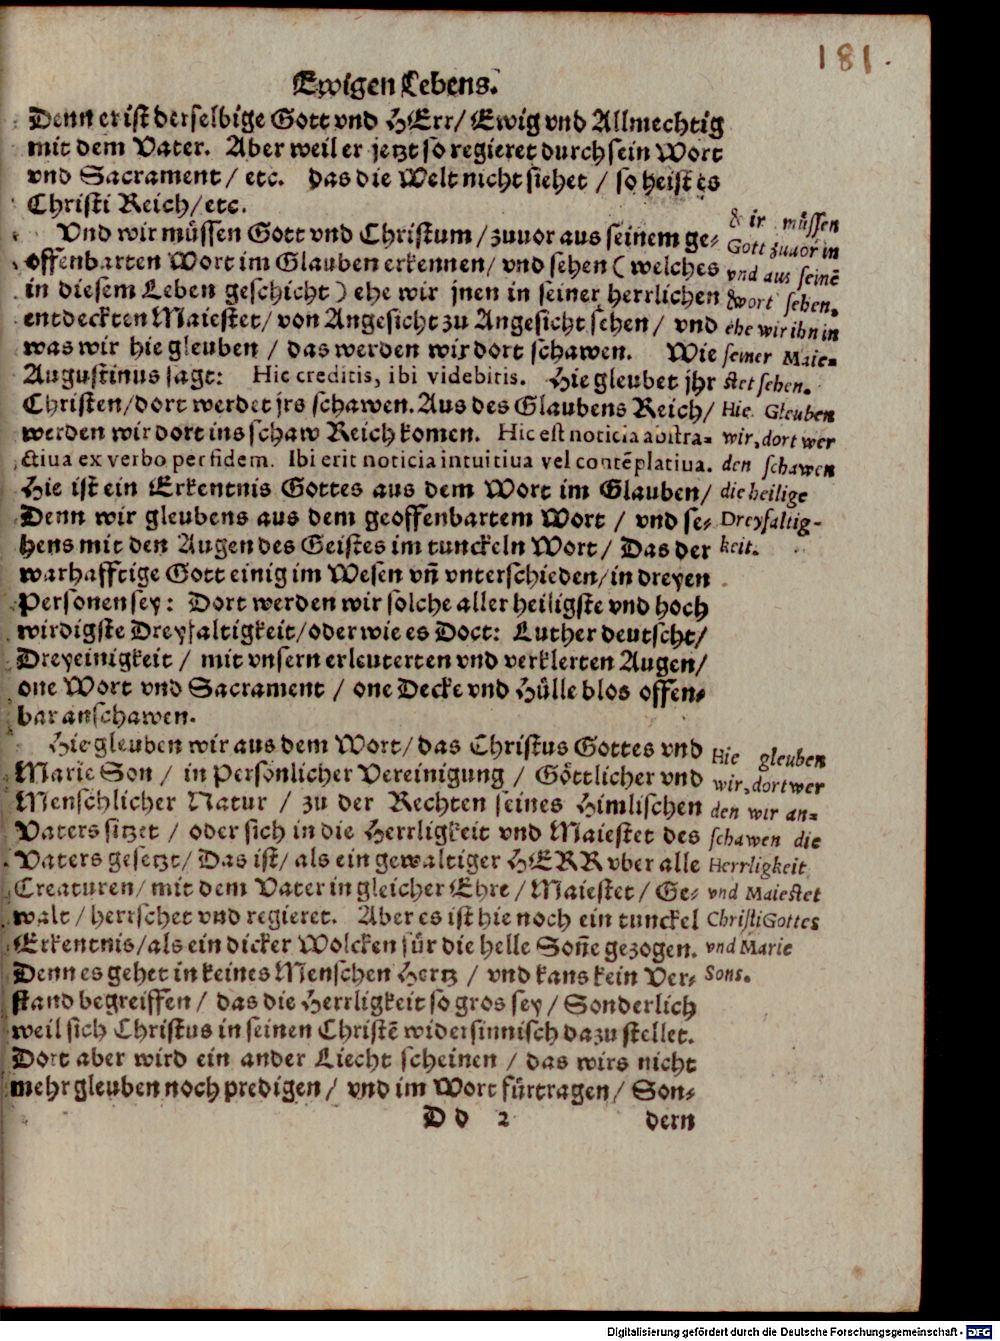 181.
Ewigen Lebens.
Denn er ist derselbige Gott vnd HErr/ Ewig vnd Allmechtig
mit dem Vater. Aber weil er jetzt so regieret durch sein Wort
vnd Sacrament/ etc. das die Welt nicht siehet / so heist es
Christi Reich/etc.
Vnd wir müssen Gott vnd Christum/zuuor aus seinem ge-
offenbarten Wort im Glauben erkennen/ vnd sehen (welches
in diesem Leben geschicht) ehe wir jnen in seiner herrlichen
entdeckten Maiestet/ von Angesicht zu Angesicht sehen/ vnd
was wir hie gleuben / das werden wir dort schawen. Wie
Augustinus sagt: Hic creditis, ibi videbitis. Hie gleubet jhr
Christen/dort werdet jrs schawen. Aus des Glaubens Reich/
werden wir dort ins schaw Reich komen. Hic est noticia abstra-
ctiua ex verbo per fidem. Ibi erit noticia intuitiua vel contēplatiua.
Hie ist ein Erkentnis Gottes aus dem Wort im Glauben/
Denn wir gleubens aus dem geoffenbartem Wort / vnd se-
hens mit den Augen des Geistes im tunckeln Wort/ Das der
warhafftige Gott einig im Wesen vñ vnterschieden/in dreyen
Personen sey: Dort werden wir solche aller heiligste vnd hoch
wirdigste Dreyfaltigkeit/oder wie es Doct: Luther deutscht/
Dreyeinigkeit / mit vnsern erleuterten vnd verklerten Augen/
one Wort vnd Sacrament / one Decke vnd Hülle blos offen-
bar anschawen.
Hie gleuben wir aus dem Wort/ das Christus Gottes vnd
Marie Son / in Persönlicher Vereinigung / Göttlicher vnd
Menschlicher Natur / zu der Rechten seines Himlischen
Vaters sitzet / oder sich in die Herrligkeit vnd Maiestet des
Vaters gesetzt/ Das ist/ als ein gewaltiger HERR vber alle
Creaturen/ mit dem Vater in gleicher Ehre/ Maiestet/ Ge-
walt / herrschet vnd regieret. Aber es ist hie noch ein tunckel
Erkentnis/als ein dicker Wolcken für die helle Soñe gezogen.
Denn es gehet in keines Menschen Hertz / vnd kans kein Ver-
stand begreiffen/ das die Herrligkeit so gros sey/ Sonderlich
weil sich Christus in seinen Christē widersinnisch dazu stellet.
Dort aber wird ein ander Liecht scheinen / das wirs nicht
mehr gleuben noch predigen/ vnd im Wort fürtragen/ Son-
D d 2 dern
Wir müssen
Gott zuuor in
vnd aus seinē
Wort sehen,
ehe wir ihn in
seiner Maie-
stet sehen.
Hie Gleuben
wir, dort wer
den schawen
die heilige
Dreyfaltig-
keit.
Hie gleuben
wir, dort wer
den wir an-
schawen die
Herrligkeit
vnd Maiestet
Christi Gottes
vnd Marie
Sons.
Digitalisierung gefördert durch die Deutsche Forschungsgemeinschaft - DFG